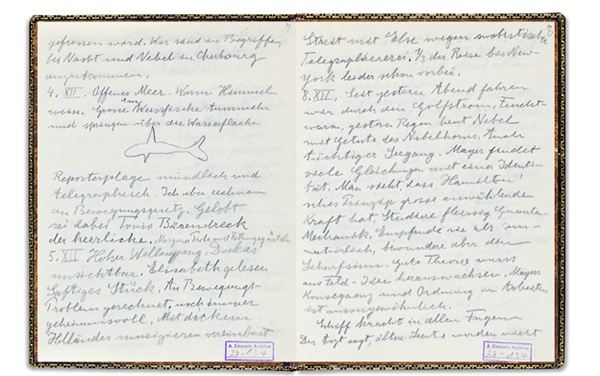 7
gefressen ward. War rund an Begriffen
bei Nacht und Nebel in Cherbourg
angekommen.
4. XII. Offenes Meer. Warm Himmel
weiss. Grosse Weissfische tummeln
und springen über die Wasserfläche
Reporterplage mündlich und
telegraphisch. Ich aber rechnen
an Bewegungsgesetz. Gelobt
sei dabei Bärendreck
der herrliche.
5. XII Hoher Wellengang.
unsichtbar. Elisabeth gelesen
Saftiges Stück. An Bewegungs-
Problem gerechnet, noch immer
geheimnisvoll. Mit dickem
Holländer musizieren vereinbart
A. Einstein Archive
29-134
8
Streit mit Else wegen
Telegraphiererei. 1/2 der Reise bis New-
york leider schon vorbei.
8. XII. Seit gestern Abend fahren
wir durch den Golfstrom, Feucht-
warm, gestern Regen heut Nebel
mit Getute des Nebelhorns. Auch
tüchtiger Seegang. Mayer findet
viele Gleichungen mit einer Identi-
tät. Man sieht, dass Hamilton'
sches Prinzip grosse auswählende
Kraft hat. Studiere fleissig Quanten-
Mechanik. Empfinde sie als un-
natürlich, bewundere aber den
Scharfsinn. Gute Theorie muss
aus Feld-Idee herauswachsen. Mayers
Konsequenz und Ordnung im Arbeiten
ist aussergewöhnlich.
Schiff kracht in allen Fugen
Der Arzt sagt, ältere Leute würden nicht
A. Einstein Archive
29-134